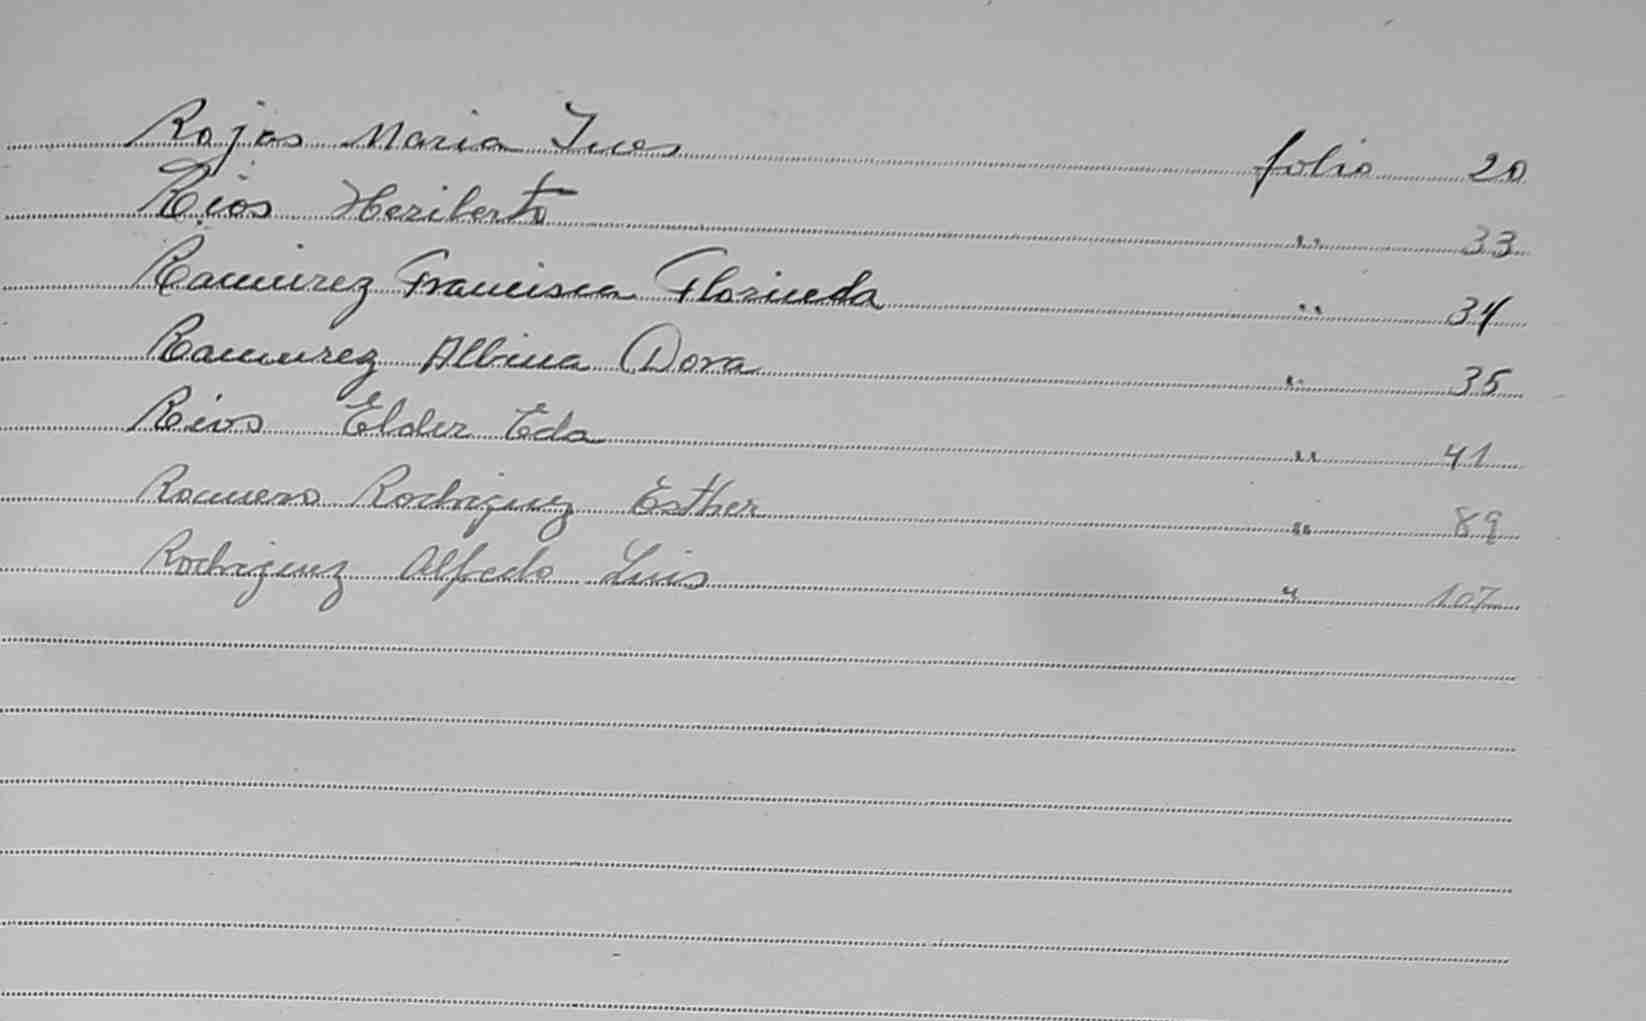 Rojas Maria Ines folio 20
Rios Heriberto " 33
Ramirez Francisca Florinda " 34
Ramirez Albina Dora " 35
Rios Elder Eda " 41
Romero Rodriguez Esther " 89
Rodriguez Alfredo Luis " 107